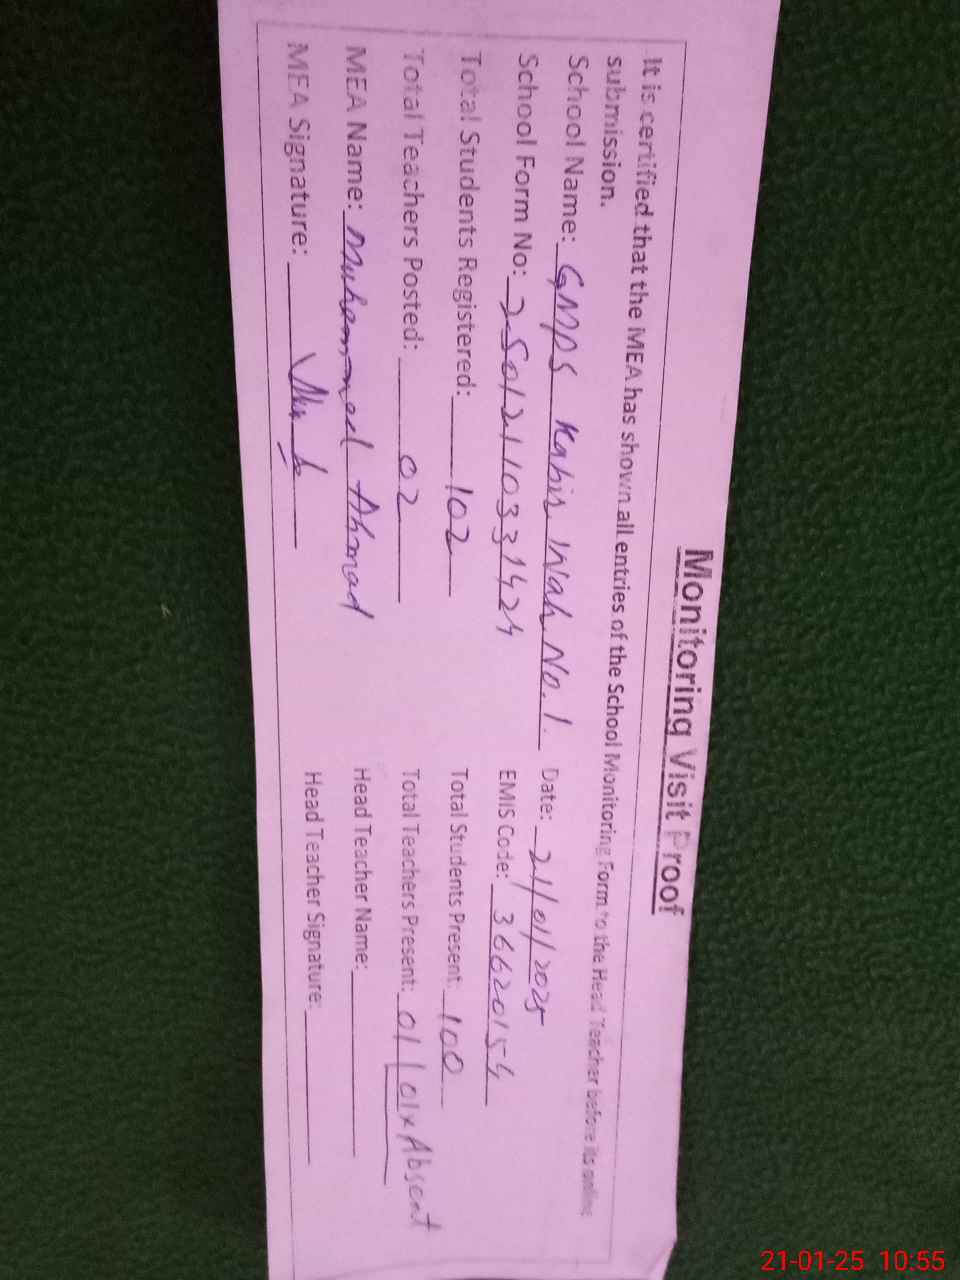 Monitoring Visit Proof
It is certified that the MEA has shown all entries of the School Monitoring Form to the Head Teacher before its online
submission.
School Name: GMPS Kabir Wah No. 1. Date: 21/01/2025
School Form No: 25012110331424 EMIS Code: 36620154
Total Students Registered: 102 Total Students Present: 100
Total Teachers Posted: 02 Total Teachers Present: 01 | 01x Absent
MEA Name: Muhammad Ahmad Head Teacher Name:
MEA Signature: Head Teacher Signature:
21-01-25 10:55